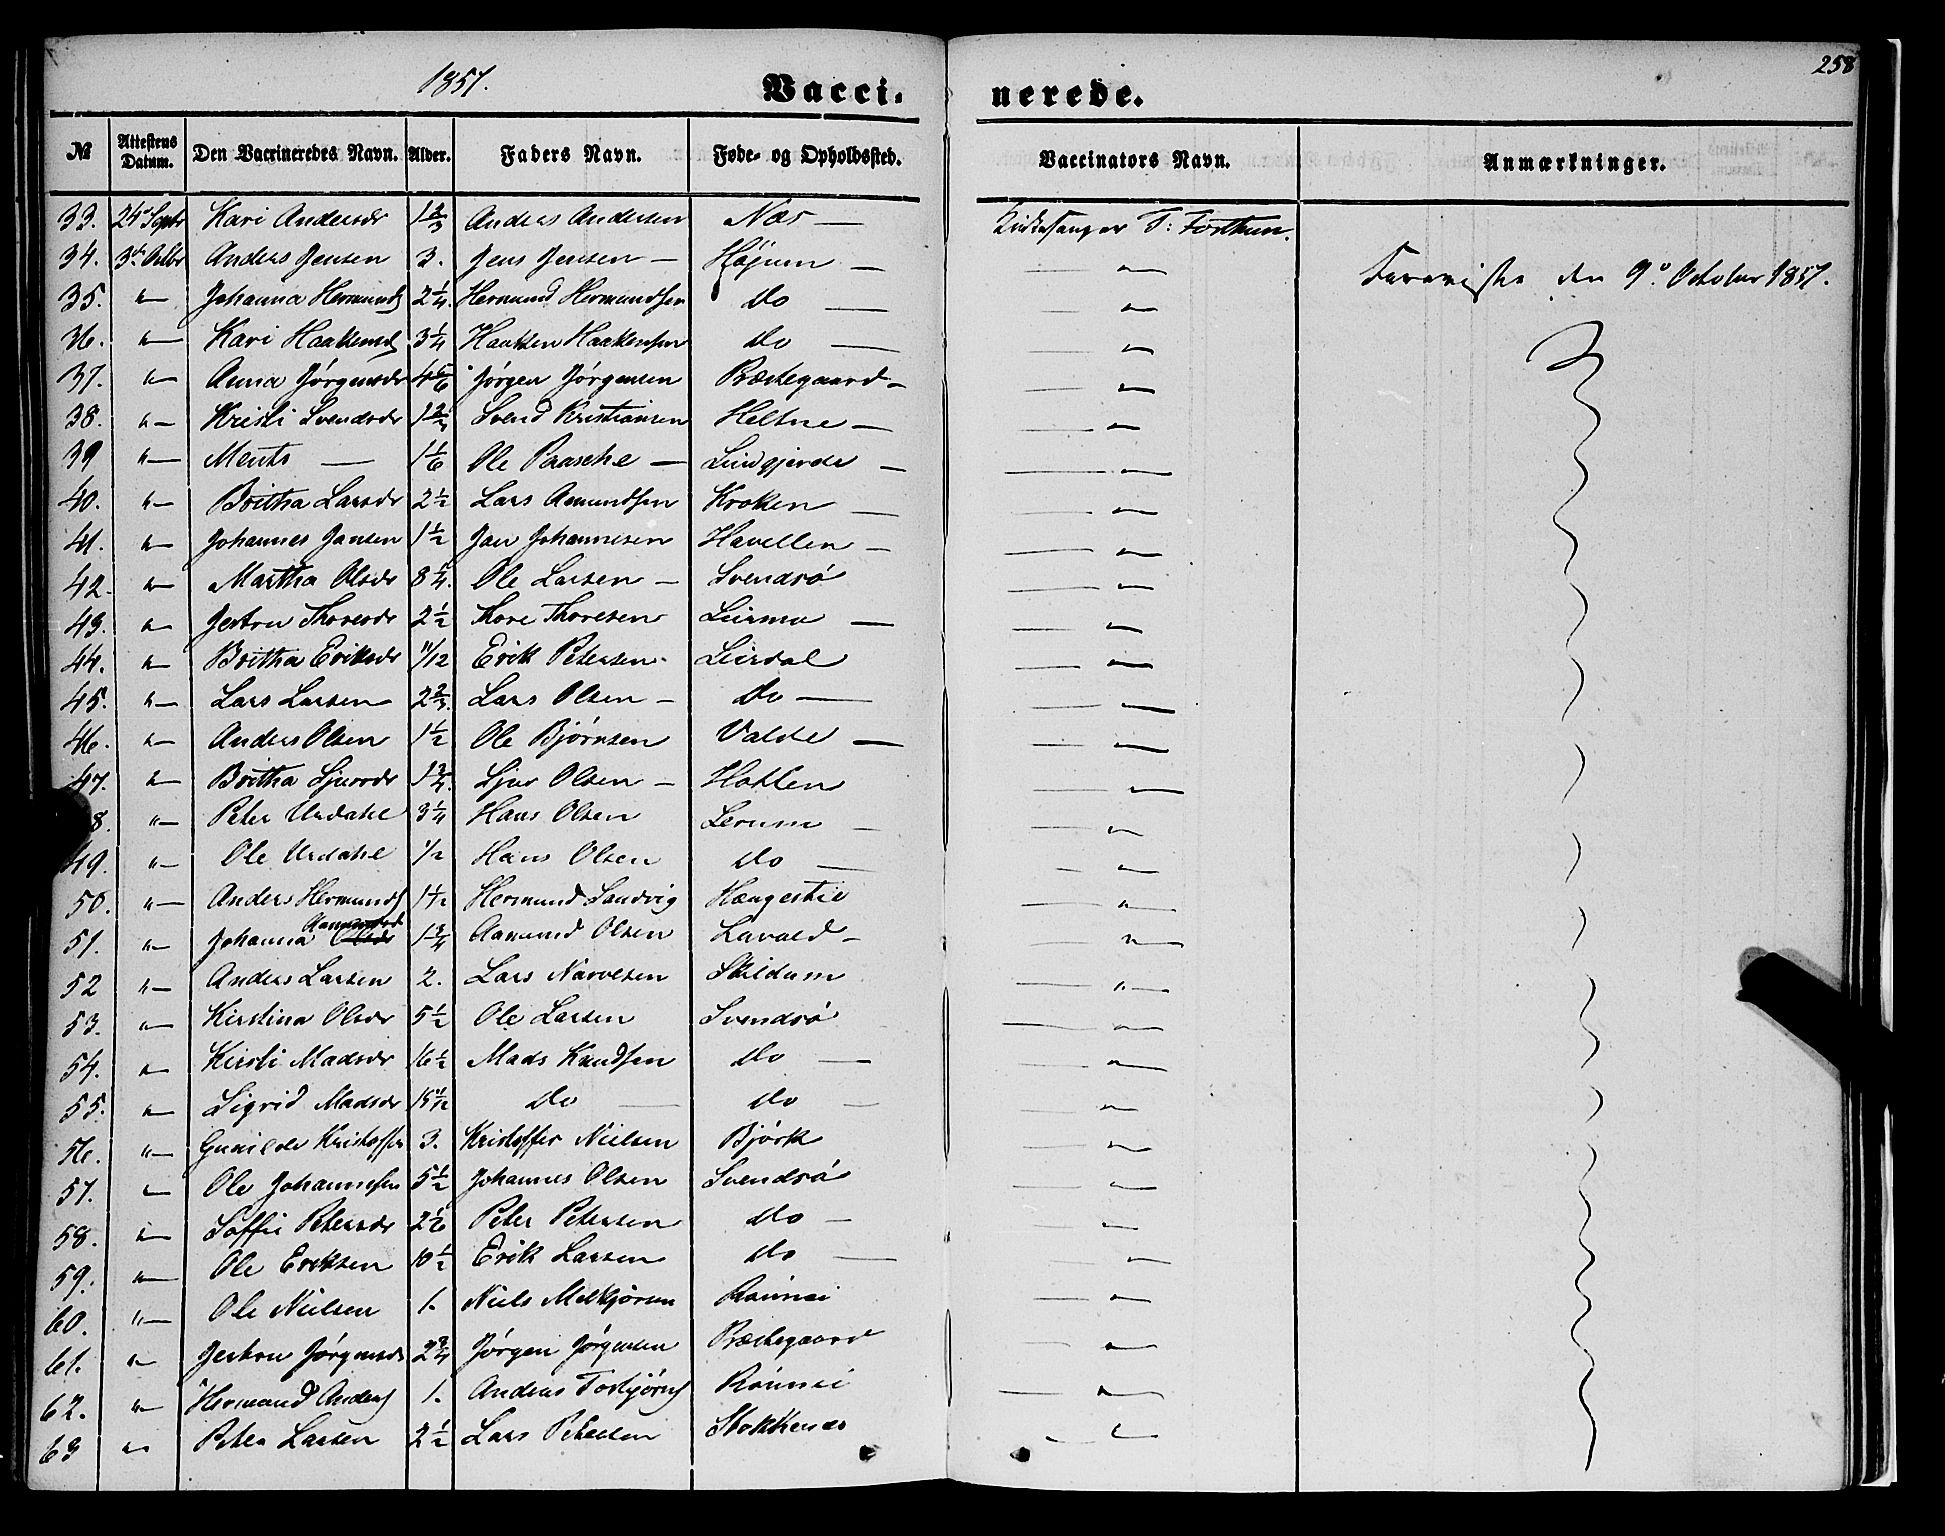 1857.
258
Vacci-
nerede.
№ Attestens Datum. Den Vaccineredes Navn. Alder. Faders Navn. Føde- og Opholdssted. Vaccinators Navn. Anmærkninger.
33. 24de Septbr Kari Andersdr 1 2/3 Anders Andersen Næs — Kirkesanger T: Forthun.
34. 3die Octbr Anders Jensen 3. Jens Jensen — Høyum — — " —
Foreviste den 9de October 1857.
35. " — Johanna Hermunds 2 1/4. Hermund Hermundsen do — — " —
36. " — Kari Haakensd 3 1/4 Haaken Haakensen do — — " —
37. " — Anna Jørgensdr 4 5/6 Jørgen Jørgensen Præstegaard — — " —
38. " — Kristi Svendsdr 1 2/3 Svend Kristiansen Heltne — — " —
39 " — Ments — 1 1/6 Ole Paasche — — — " —
40. " — Britha Larsdr 2 1/2 Lars Amundsen Kroken — — " —
41. " — Johannes Jansen 1 1/2 Jan Johannesen Havellen — — " —
42. " — Martha Olsdr 8 1/4. Ole Larsen — Svendsø — " —
43. " — Jertru Thoresdr 2 1/2 Thore Thoresen Leirmo — — " —
44. " — Britha Eriksdr 11/12 Erik Petersen Leirdal — " —
45. " — Lars Larsen 2 2/3. Lars Olsen — do — — " —
46. " — Anders Olsen 1 1/2 Ole Bjørnsen Valde — — " —
47. " — Britha Sjursdr 1 3/4. Sjur Olsen — Hatlen — " —
8. " — Peter Urdahl 3 1/4 Hans Olsen Lerum — — " —
49. " — Ole Urdahl 1/2 Hans Olsen do — — " —
50. " — Anders Hermunds 1 1/2 Hermund Sandvig Haugestie — " —
51. " — Johanna Aamundsd 1 3/4 Aamund Olsen Lavold — — " —
52 " — Anders Larsen 2. Lars Narvesen Skildum — " —
53. " — Kirstina Olsdr 5 1/2 Ole Larsen Svendsø — " —
54. " — Kirsti Madsdr 16 1/2 Mads Knudsen do — — " —
55. " — Sigrid Madsdr 15 11/12 do — do — — " —
56. " — Gunilde Kristoffer 3. Kristoffer Nielsen Bjørk — " —
57. " — Ole Johannesen 5 1/2 Johannes Olsen Svendsø — " —
58. " — Soffie Petersdr 2 1/6 Peter Petersen do — — " —
59. " — Ole Eriksen 10 1/2 Erik Larsen do — — " —
60. " — Ole Nielsen 1. Niels Melkjørsen Røinei — " —
61. " — Jertru Jørgensdr 2 3/4 Jørgen Jørgensen Præstegaard — " —
62. " — Hermand Anders 1. Andreas Torbjørns Røinei — " —
63 " — Peter Larsen 2 1/2 Lars Petersen Stokkenæs — " —